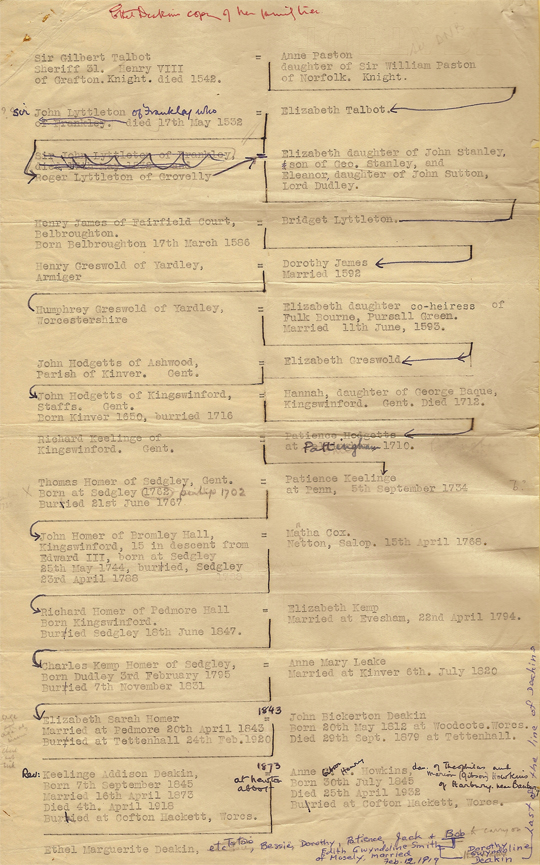 Ethel Deakins copy of her family tree
Sir Gilbert Talbot = Anne Paston
Sheriff 31. Henry VIII daughter of Sir William Paston
of Grafton. Knight. died 1542. of Norfolk. Knight.
Sir John Lyttleton of Frankley who = Elizabeth Talbot.
of Frankley. died 17th May 1532
Sir John Lyttleton of Frankley, = Elizabeth daughter of John Stanley,
& son of Geo. Stanley, and
Roger Lyttleton of Grovelly Eleanor daughter of John Sutton,
Lord Dudley.
Henry James of Fairfield Court, = Bridget Lyttleton.
Belbroughton.
Born Belbroughton 17th March 1586
Henry Greswold of Yardley, = Dorothy James
Armiger Married 1592
Humphrey Greswold of Yardley, = Elizabeth daughter co-heiress of
Worcestershire Fulk Bourne, Pursall Green.
Married 11th June, 1593.
John Hodgetts of Ashwood, = Elizabeth Greswold
Parish of Kinver. Gent.
John Hodgetts of Kingswinford, = Hannah, daughter of George Baque,
Staffs. Gent. Kingswinford. Gent. Died 1712.
Born Kinver 1650, burried 1716
Richard Keelinge of = Patience Hodgetts
Kingswinford. Gent. at Pattingham 1710.
Thomas Homer of Sedgley, Gent. = Patience Keelinge
Born at Sedgley (1762) 1702 at Penn, 5th September 1734
Burried 21st June 1767
John Homer of Bromley Hall, = Matha Cox.
Kingswinford, 15 in descent from Netton, Salop. 15th April 1768.
Edward III, born at Sedgley
25th May 1744, burried, Sedgley
23rd April 1788
Richard Homer of Pedmore Hall = Elizabeth Kemp
Born Kingswinford. Married at Evesham, 22nd April 1794.
Burried Sedgley 18th June 1847.
Charles Kemp Homer of Sedgley, = Anne Mary Leake
Born Dudley 3rd February 1795 Married at Kinver 6th. July 1820
Burried 7th November 1831
1843
Elizabeth Sarah Homer = John Bickerton Deakin
Married at Pedmore 20th April 1843 Born 20th May 1812 at Woodcote.Worcs.
Burried at Tettenhall 24th Feb.1920 Died 29th Sept. 1879 at Tettenhall.
1873
Rev: Keelinge Addison Deakin, Anne Gibson Howkins, dau. of Theophilus and
Born 7th September 1845 Born 30th July 1845 Marion (Gibson) Howkins
Married 16th April 1873 Died 25th April 1932 of Harbury, near Banbury
Died 4th. April 1918 Burried at Cofton Hackett, Worcs.
Burried at Cofton Hackett, Worcs.
Ethel Marguerite Deakin, etc Bessie, Dorothy, Patience, Jack & Bob
Edith Gwyndoline Smith
of Mosely, married
Feb. 12. 1919
Dorothy
Gwyndoline
Deakin
last of the line of Deakins